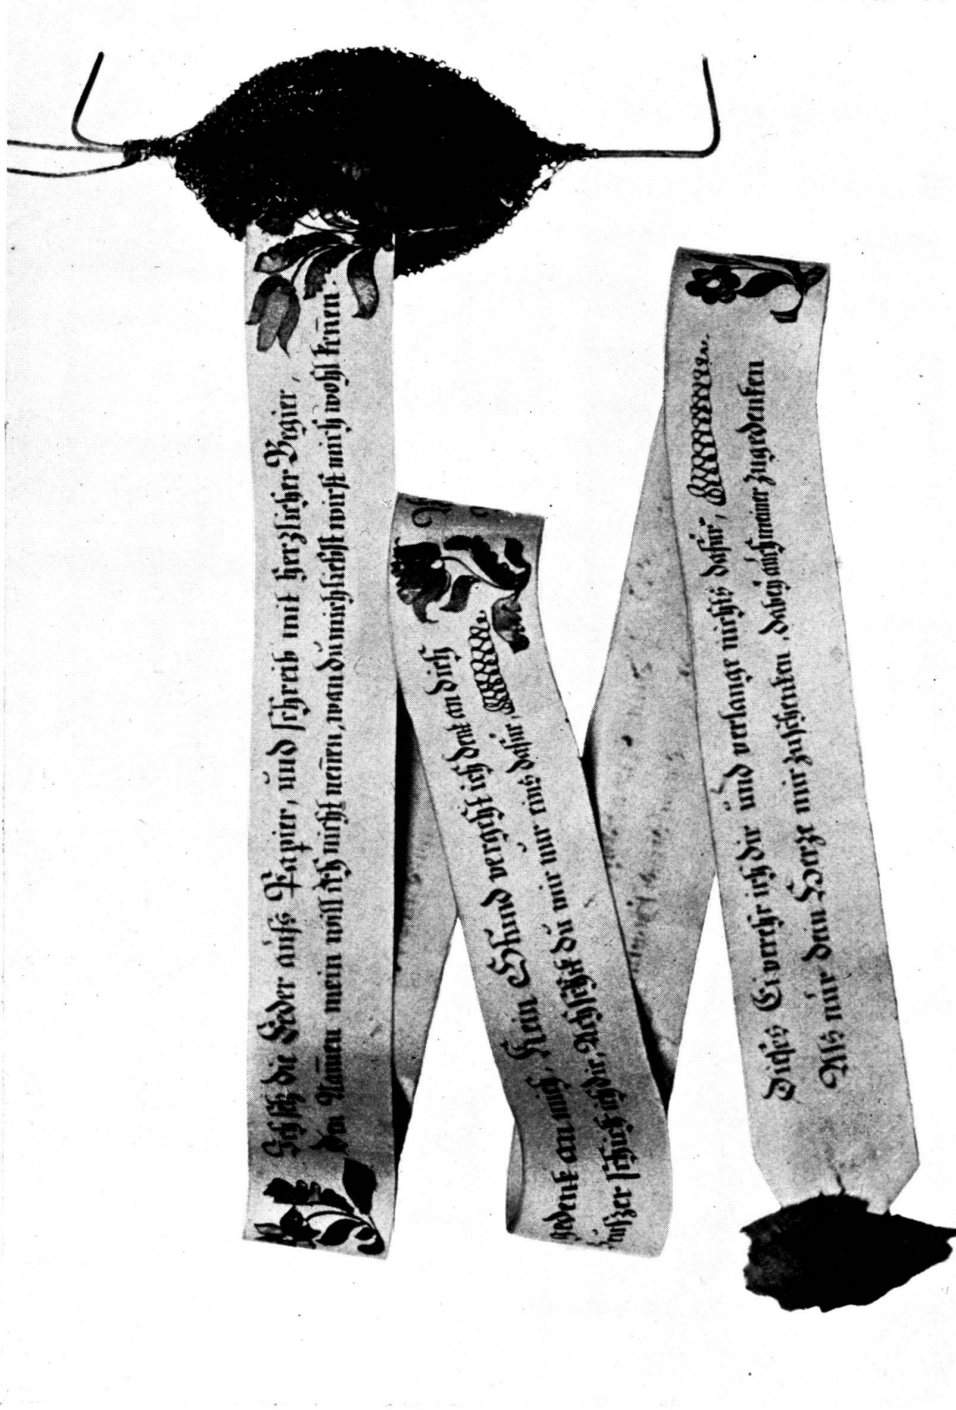 Ich setz die Feder aufs Papier, und schreib mit herzlicher Begier,
Den Namen mein will ich nicht nen̄en, wan du mich liebst wirst mich wohl ken̄en.
Gedenk an mich, Kein Stund vergeht ich denk an dich
schick ich dir, du mir nur eins dafür,
Dieses Ei verehr ich dir und verlange nichts dafür,
Als nur dein Herze mir zuschenken, dabey auch meiner zugedenken